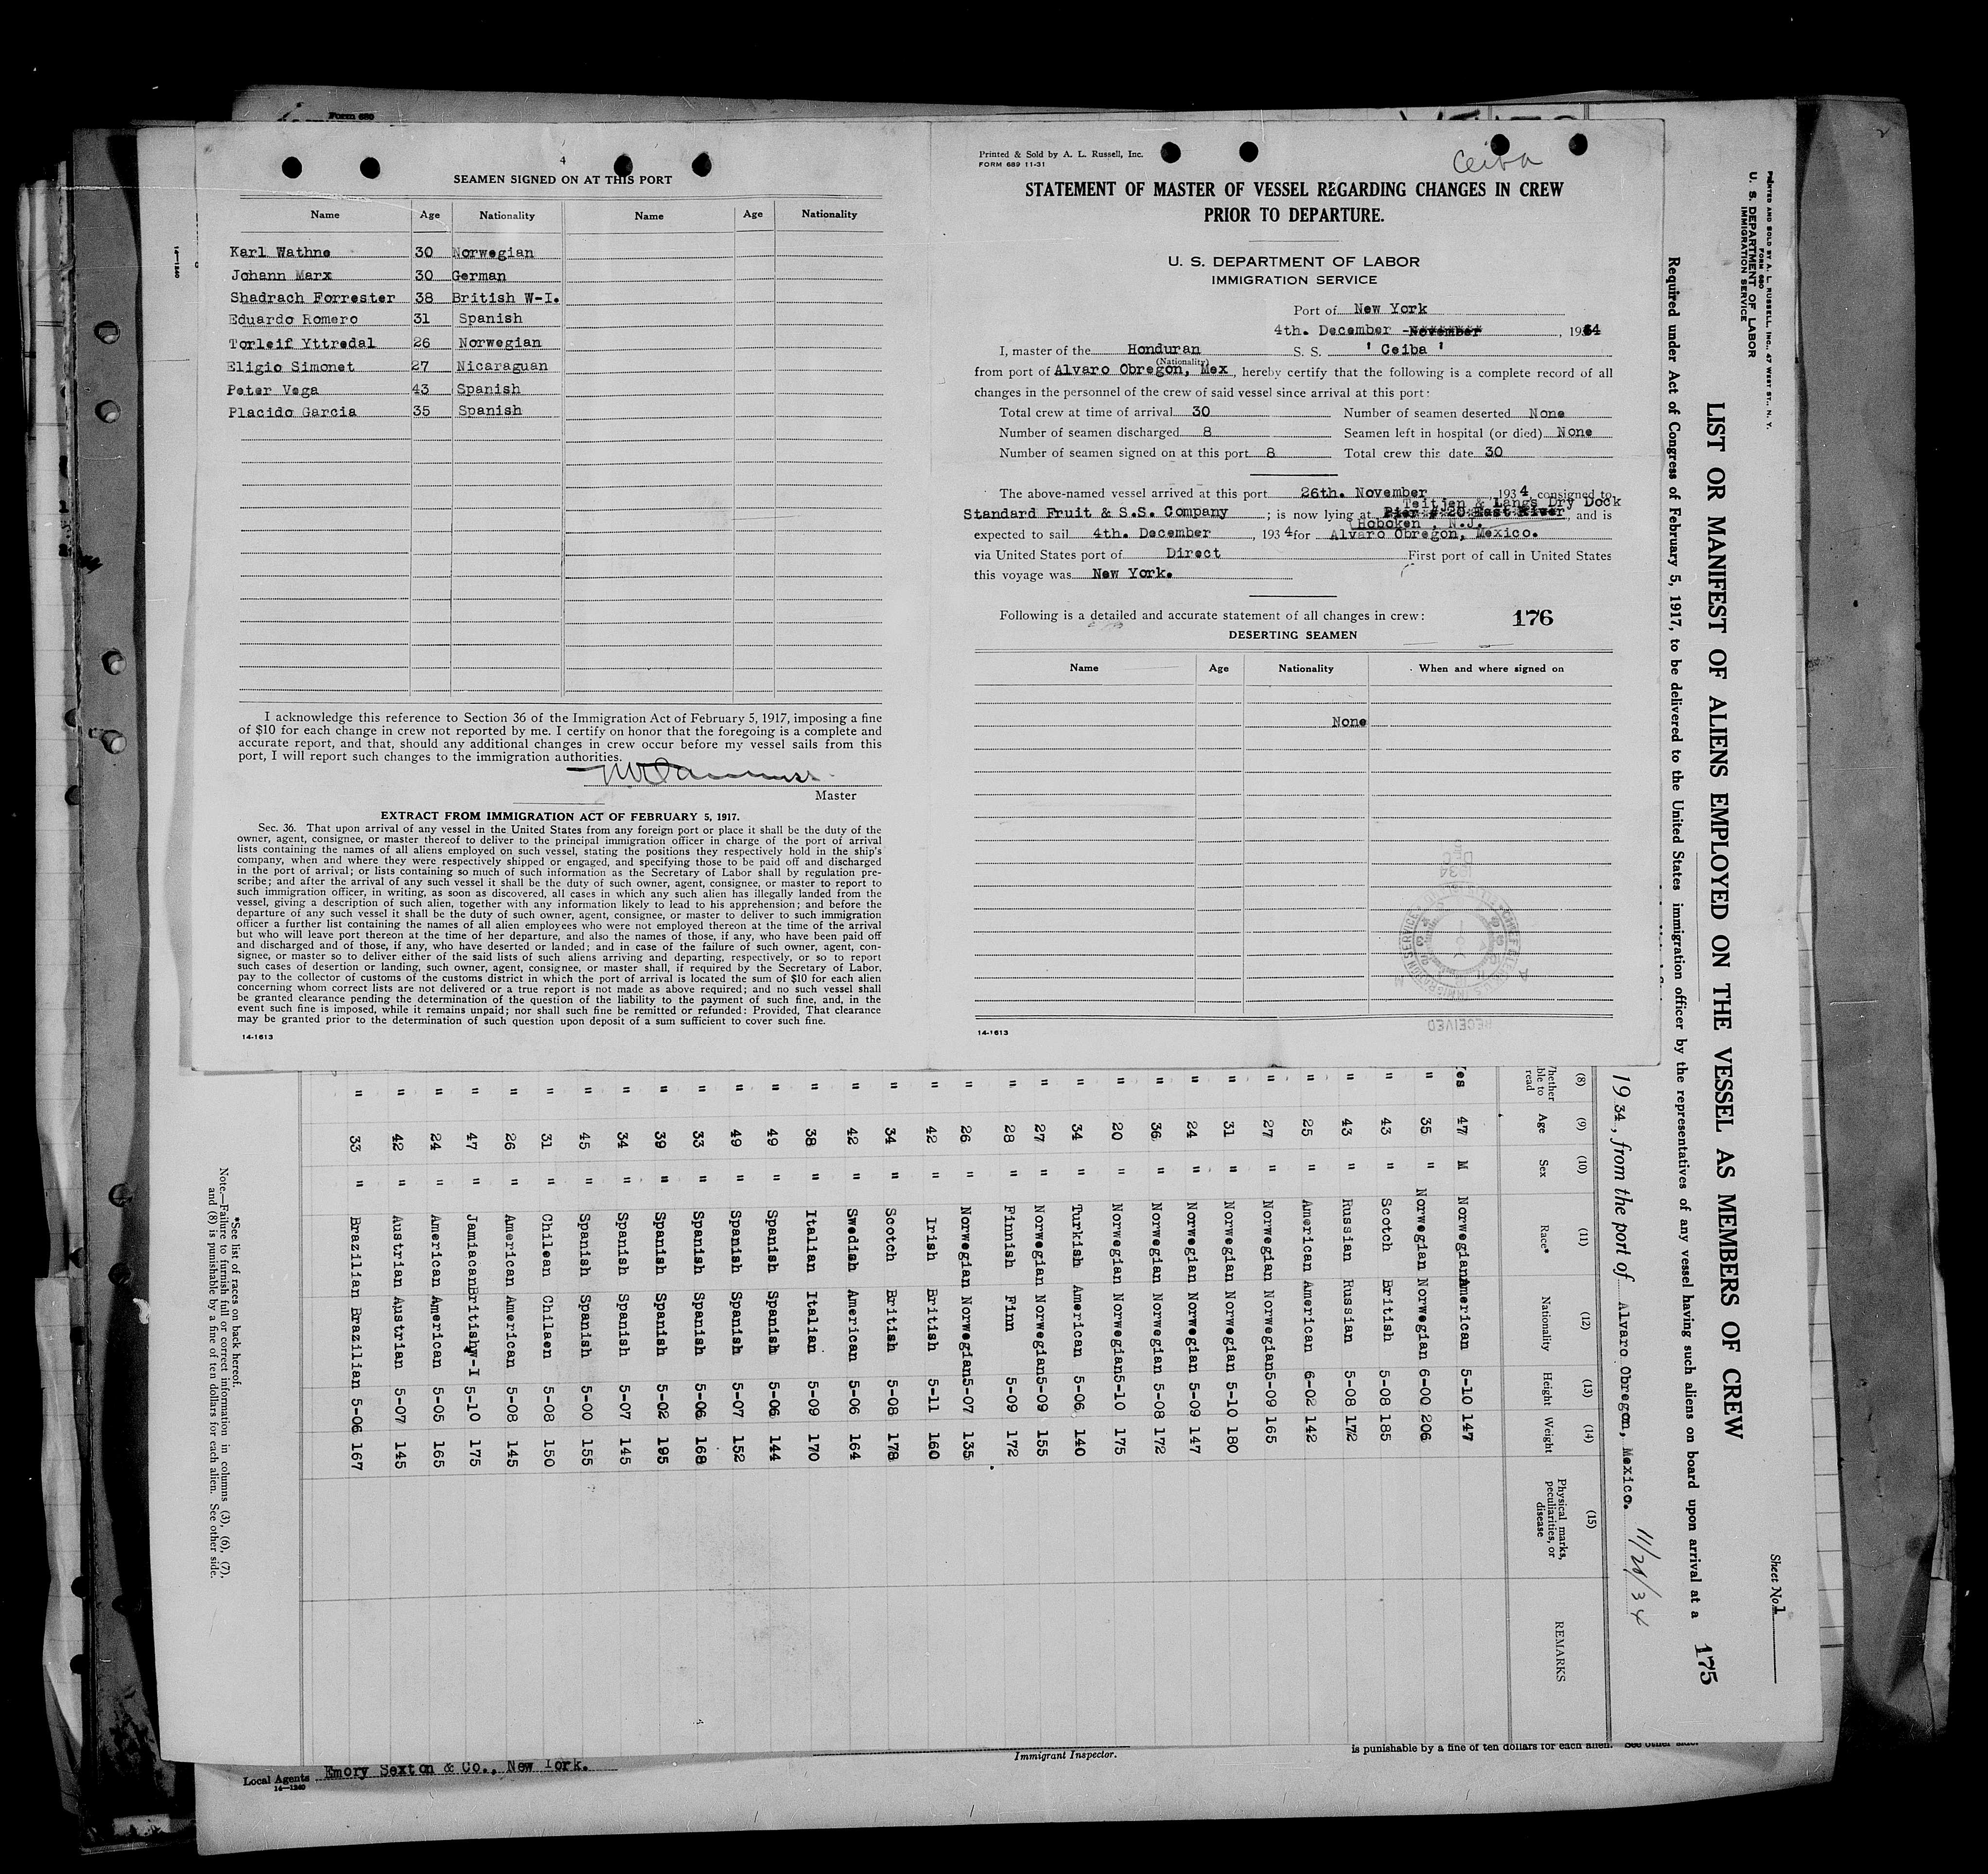 Form 680
4
SEAMEN SIGNED ON AT THIS PORT
Name Age Nationality Name Age Nationality
Karl Wathne 30 Norwegian
Johann Marx 30 German
Shadrach Forrester 38 British W-I.
Eduardo Romero 31 Spanish
Torleif Yttredal 26 Norwegian
Eligio Simonet 27 Nicaraguan
Peter Vega 43 Spanish
Placido Garcia 35 Spanish
I acknowledge this reference to Section 36 of the Immigration Act of February 5, 1917, imposing a fine
of $10 for each change in crew not reported by me. I certify on honor that the foregoing is a complete and
accurate report, and that, should any additional changes in crew occur before my vessel sails from this
port, I will report such changes to the immigration authorities.
Master
EXTRACT FROM IMMIGRATION ACT OF FEBRUARY 5, 1917.
Sec. 36. That upon arrival of any vessel in the United States from any foreign port or place it shall be the duty of the
owner, agent, consignee, or master thereof to deliver to the principal immigration officer in charge of the port of arrival
lists containing the names of all aliens employed on such vessel, stating the positions they respectively hold in the ship's
company, when and where they were respectively shipped or engaged, and specifying those to be paid off and discharged
in the port of arrival; or lists containing so much of such information as the Secretary of Labor shall by regulation pre-
scribe; and after the arrival of any such vessel it shall be the duty of such owner, agent, consignee, or master to report to
such immigration officer, in writing, as soon as discovered, all cases in which any such alien has illegally landed from the
vessel, giving a description of such alien, together with any information likely to lead to his apprehension; and before the
departure of any such vessel it shall be the duty of such owner, agent, consignee, or master to deliver to such immigration
officer a further list containing the names of all alien employees who were not employed thereon at the time of the arrival
but who will leave port thereon at the time of her departure, and also the names of those, if any, who have been paid off
and discharged and of those, if any, who have deserted or landed; and in case of the failure of such owner, agent, con-
signee, or master so to deliver either of the said lists of such aliens arriving and departing, respectively, or so to report
such cases of desertion or landing, such owner, agent, consignee, or master shall, if required by the Secretary of Labor,
pay to the collector of customs of the customs district in which the port of arrival is located the sum of $10 for each alien
concerning whom correct lists are not delivered or a true report is not made as above required; and no such vessel shall
be granted clearance pending the determination of the question of the liability to the payment of such fine, and, in the
event such fine is imposed, while it remains unpaid; nor shall such fine be remitted or refunded: Provided, That clearance
may be granted prior to the determination of such question upon deposit of a sum sufficient to cover such fine.
14-1613
Printed & Sold by A. L. Russell, Inc.
FORM 689 11-31
Ceiba
STATEMENT OF MASTER OF VESSEL REGARDING CHANGES IN CREW
PRIOR TO DEPARTURE.
U. S. DEPARTMENT OF LABOR
IMMIGRATION SERVICE
Port of New York
4th. December -November, 1934
I, master of the Honduran S. S. ' Ceiba '
(Nationality)
from port of Alvaro Obregon, Mex, hereby certify that the following is a complete record of all
changes in the personnel of the crew of said vessel since arrival at this port:
Total crew at time of arrival 30 Number of seamen deserted None
Number of seamen discharged 8 Seamen left in hospital (or died) None
Number of seamen signed on at this port 8 Total crew this date 30
The above-named vessel arrived at this port 26th. November 1934 consigned to
Teitjen & Langs Dry Dock
Standard Fruit & S.S. Company ; is now lying at Pier # 20 East River, and is
Hoboken , N.J.
expected to sail 4th. December, 1934 for Alvaro Obregon, Mexico.
via United States port of Direct First port of call in United States
this voyage was New York.
Following is a detailed and accurate statement of all changes in crew: 176
DESERTING SEAMEN
Name Age Nationality When and where signed on
None
DEC 1934
RECEIVED
14-1613
14-1240
PRINTED AND SOLD BY A. L. RUSSELL, INC., 47 WEST ST., N. Y.
FORM 680
U. S. DEPARTMENT OF LABOR
IMMIGRATION SERVICE
Sheet No. 1
LIST OR MANIFEST OF ALIENS EMPLOYED ON THE VESSEL AS MEMBERS OF CREW
175
Required under Act of Congress of February 5, 1917, to be delivered to the United States immigration officer by the representatives of any vessel having such aliens on board upon arrival at a
1934, from the port of Alvaro Obregon, Mexico. 11/20/34
(8) (9) (10) (11) (12) (13) (14) (15)
hether ble to read Age Sex Race* Nationality Height Weight Physical marks, peculiarities, or disease REMARKS
Yes 47 M Norwegian American 5-10 147
" 35 " Norwegian Norwegian 6-00 206
" 43 " Scotch British 5-08 185
" 43 " Russian Russian 5-08 172
" 25 " American American 6-02 142
" 27 " Norwegian Norwegian 5-09 165
" 31 " Norwegian Norwegian 5-10 180
" 24 " Norwegian Norwegian 5-09 147
" 36 " Norwegian Norwegian 5-08 172
" 20 " Norwegian Norwegian 5-10 175
" 34 " Turkish American 5-06 140
" 27 " Norwegian Norwegian 5-09 155
" 28 " Finnish Finn 5-09 172
" 26 " Norwegian Norwegian 5-07 135
" 42 " Irish British 5-11 160
" 34 " Scotch British 5-08 178
" 42 " Swedish American 5-06 164
" 38 " Italian Italian 5-09 170
" 49 " Spanish Spanish 5-06 144
" 49 " Spanish Spanish 5-07 152
" 33 " Spanish Spanish 5-06 168
" 39 " Spanish Spanish 5-02 195
" 34 " Spanish Spanish 5-07 145
" 45 " Spanish Spanish 5-00 155
" 31 " Chilean Chilaen 5-08 150
" 26 " American American 5-08 145
" 47 " Jamiacan British W-I 5-10 175
" 24 " American American 5-05 165
" 42 " Austrian Austrian 5-07 145
" 33 " Brazilian Brazilian 5-06 167
*See list of races on back hereof.
Note.—Failure to furnish full or correct information in columns (3), (6), (7),
and (8) is punishable by a fine of ten dollars for each alien. See other side.
Immigrant Inspector.
is punishable by a fine of ten dollars for each alien. See other side.
Local Agents Emory Sexton & Co., New York.
14-1240